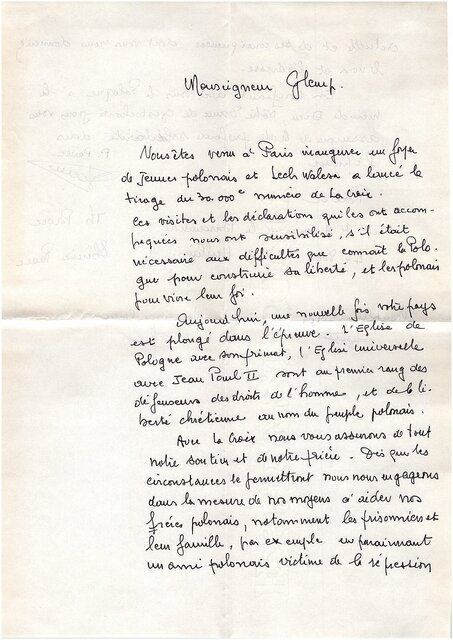 Monseigneur Glemp.
Vous êtes venu à Paris inaugurer un foyer
de Jeunes polonais et Lech Walesa a lancé le
tirage du 30.000e numéro de La Croix.
Ces visites et les déclarations qui les ont accom-
pagnées nous ont sensibilisé, s'il était
nécessaire aux difficultés que connaît la Polo-
gne pour construire sa liberté, et les polonais
pour vivre leur foi.
Aujourd'hui, une nouvelle fois votre pays
est plongé dans l'épreuve. L'Eglise de
Pologne avec son primat, l'Eglise universelle
avec Jean Paul II sont au premier rang des
défenseurs des droits de l'homme, et de la li-
berté chrétienne au nom du peuple polonais.
Avec la Croix nous vous assurons de tout
notre soutien et de notre prière. Dès que les
circonstances le permettront nous nous engageons
dans la mesure de nos moyens à aider nos
frères polonais, notamment les prisonniers et
leur famille, par exemple en parrainant
un ami polonais victime de la répression